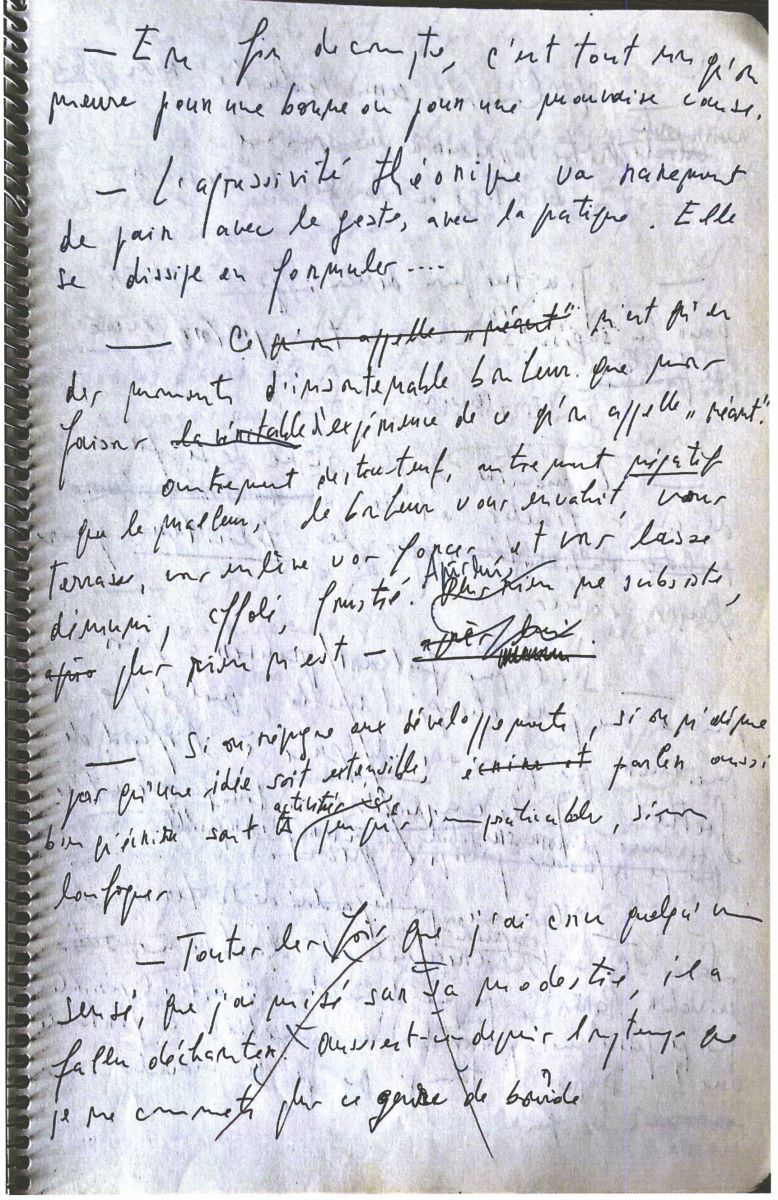 — En fin de compte, c'est tout un qu'on
meure pour une bonne ou pour une mauvaise cause.
— L'agressivité théorique va rarement
de pair avec le geste, avec la pratique. Elle
se dissipe en formules ....
— Ce qu'on appelle "néant" n'est qu'en
des moments d'insoutenable bonheur que nous
faisons la véritable l'expérience de ce qu'on appelle "néant".
autrement destructeur, autrement négatif
que le malheur, le bonheur vous envahit, vous
terrasse, vous enlève vos forces, et vous laisse
démuni, affolé, frustré. Après lui, plus rien ne subsiste,
après plus rien n'est — après lui.
— Si on répugne aux développements, si on n'admet
pas qu'une idée soit extensible, écrire et parler aussi
bien qu'écrire sont activités impraticables, sinon
loufoques
— Toutes les fois que j'ai cru quelqu'un
sensé, que j'ai misé sur sa modestie, il a
fallu déchanter. Aussi depuis longtemps que
je ne commets plus ce genre de bourde